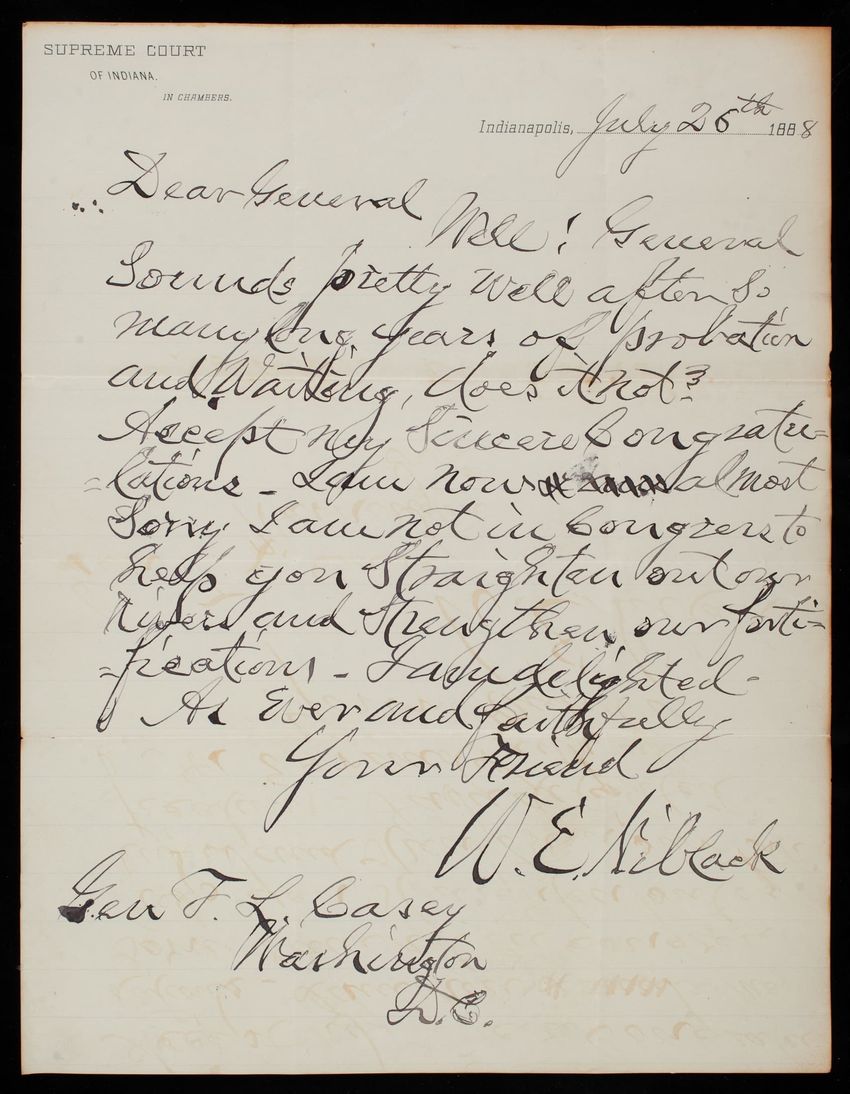 SUPREME COURT
OF INDIANA.
IN CHAMBERS.
Indianapolis, July 25th 1888
Dear General
Well! General
Sounds pretty well after so
many long years of probation
and Waiting, does it not?
Accept my Sincere Congratu=
=lations - I am now almost
Sorry I am not in Congress to
help you Straighten out our
rivers and Strengthen our forti=
=fications - I am delighted -
As Ever and faithfully
Your Friend
W. E. Niblack
Gen T. L. Casey
Washington
D.C.